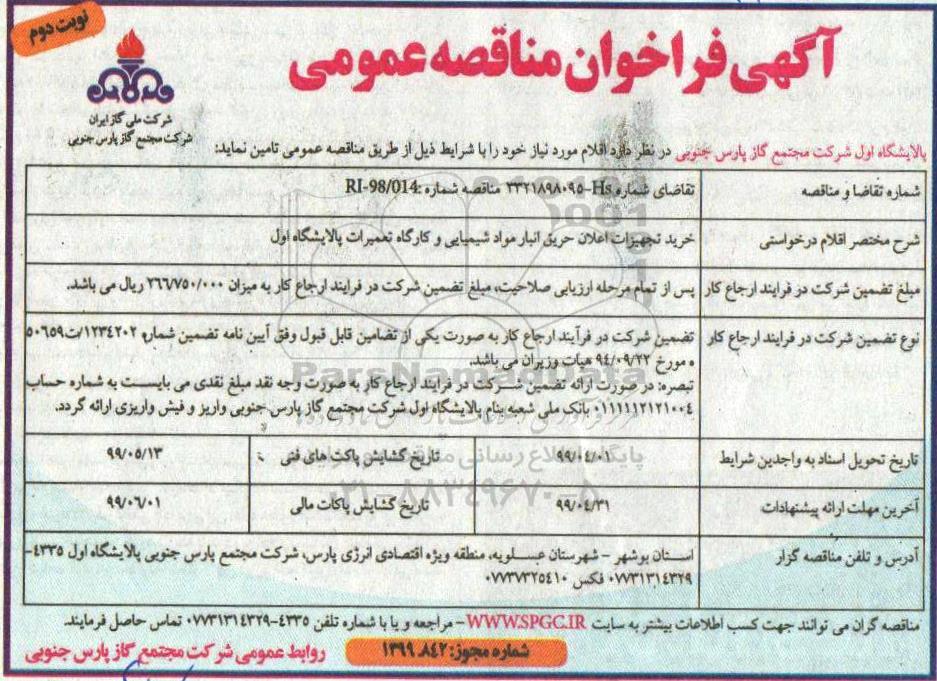 نوبت دوم
آگهی فراخوان مناقصه عمومی
شرکت ملی گاز ایران
شرکت مجتمع گاز پارس جنوبی
پالایشگاه اول شرکت مجتمع گاز پارس جنوبی در نظر دارد اقلام مورد نیاز خود را با شرایط ذیل از طریق مناقصه عمومی تامین نماید:
شماره تقاضا و مناقصه
تقاضای شماره Hs-۳۳۲۱۸۹۸۰۹۵ مناقصه شماره :RI-98/014
شرح مختصر اقلام درخواستی
خرید تجهیزات اعلان حریق انبار مواد شیمیایی و کارگاه تعمیرات پالایشگاه اول
مبلغ تضمین شرکت در فرایند ارجاع کار
پس از تمام مرحله ارزیابی صلاحیت، مبلغ تضمین شرکت در فرایند ارجاع کار به میزان ۲۶۶/۷۵۰/۰۰۰ ریال می باشد.
نوع تضمین شرکت در فرایند ارجاع کار
تضمین شرکت در فرآیند ارجاع کار به صورت یکی از تضامین قابل قبول وفق آیین نامه تضمین شماره ۱۲۳۴۲۰۲/ت۵۰۶۵۹
ه مورخ ۹۴/۰۹/۲۲ هیات وزیران می باشد.
تبصره: در صورت ارائه تضمین شرکت در فرایند ارجاع کار به صورت وجه نقد مبلغ نقدی می بایست به شماره حساب
۰۱۱۱۱۱۲۱۲۱۰۰۴ بانک ملی شعبه بنام پالایشگاه اول شرکت مجتمع گاز پارس جنوبی واریز و فیش واریزی ارائه گردد.
تاریخ تحویل اسناد به واجدین شرایط
۹۹/۰۴/۰۱
تاریخ گشایش پاکت های فنی
۹۹/۰۵/۱۳
آخرین مهلت ارائه پیشنهادات
۹۹/۰۴/۳۱
تاریخ گشایش پاکات مالی
۹۹/۰۶/۰۱
آدرس و تلفن مناقصه گزار
استان بوشهر - شهرستان عسلویه، منطقه ویژه اقتصادی انرژی پارس، شرکت مجتمع پارس جنوبی پالایشگاه اول ۴۳۳۵-
۰۷۷۳۱۳۱۴۳۲۹ فکس ۰۷۷۳۷۳۲۵۴۱۰
مناقصه گران می توانند جهت کسب اطلاعات بیشتر به سایت WWW.SPGC.IR - مراجعه و یا با شماره تلفن ۴۳۳۵-۰۷۷۳۱۳۱۴۳۲۹ تماس حاصل فرمایند.
شماره مجوز: ۱۳۹۹.۸۴۲
روابط عمومی شرکت مجتمع گاز پارس جنوبی
ParsNamadData